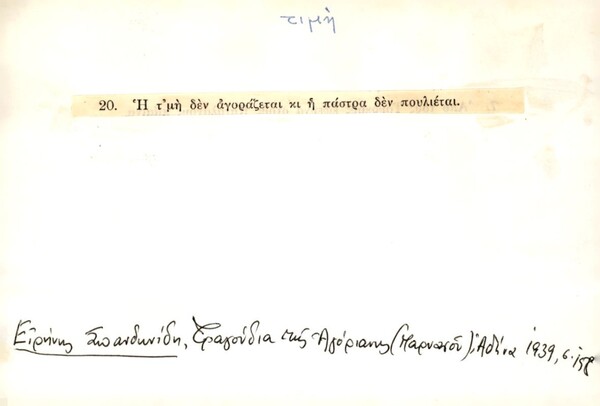 τιμὴ
20. Ἡ τ'μὴ δὲν ἀγοράζεται κι ἡ πάστρα δὲν πουλιέται.
Εἰρήνης Σπανδωνίδη, Τραγούδια τῆς Ἀγόριανης (Παρνασσοῦ), Ἀθήνα 1939, σ.